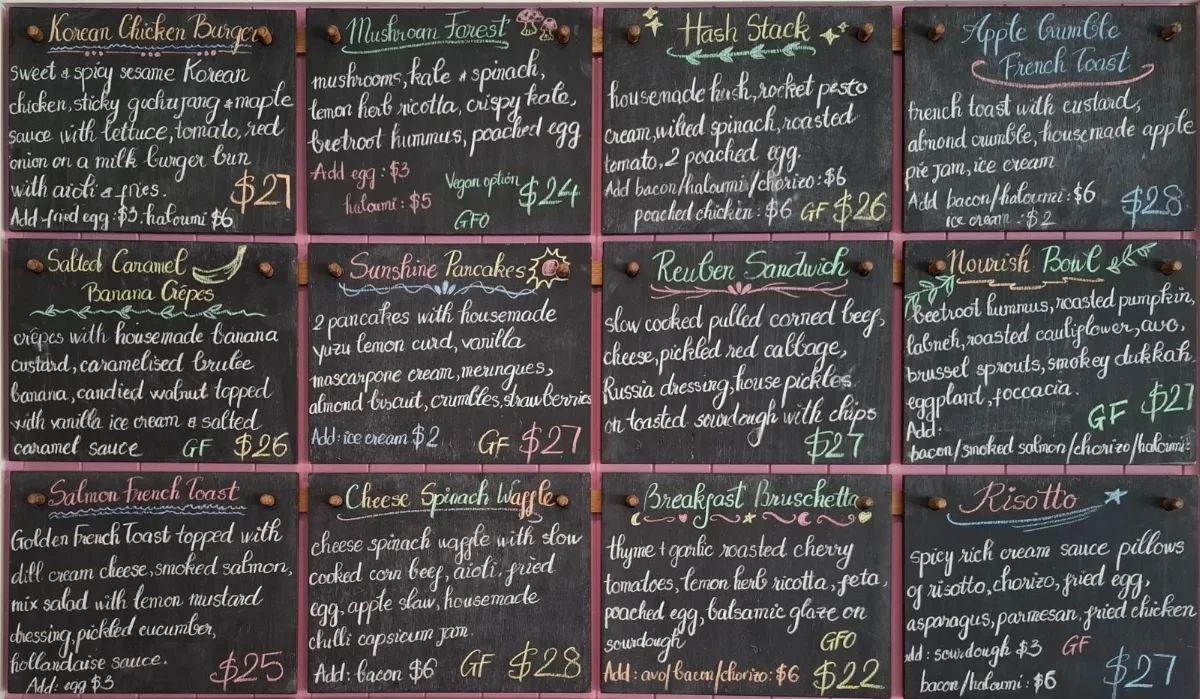 Korean Chicken Burger
sweet & spicy sesame Korean
chicken, sticky gochujang & maple
sauce with lettuce, tomato, red
onion on a milk burger bun
with aioli & fries.
$27
Add-fried egg: $3. haloumi $6
Mushroom Forest
mushrooms, kale & spinach,
lemon herb ricotta, crispy kale,
beetroot hummus, poached egg
Add egg: $3
haloumi: $5
Vegan option
GFO
$24
Hash Stack
housemade hash, rocket pesto
cream, wilted spinach, roasted
tomato, 2 poached egg.
Add bacon/haloumi/chorizo: $6
poached chicken: $6 GF $26
Apple Crumble
French Toast
french toast with custard,
almond crumble, housemade apple
pie jam, ice cream
Add bacon/haloumi: $6
ice cream: $2
$28
Salted Caramel
Banana Crêpes
crêpes with housemade banana
custard, caramelised brulee
banana, candied walnut topped
with vanilla ice cream & salted
caramel sauce GF $26
Sunshine Pancakes
2 pancakes with housemade
yuzu lemon curd, vanilla
mascarpone cream, meringues,
almond biscuit, crumbles, strawberries
Add: ice cream $2 GF $27
Reuben Sandwich
slow cooked pulled corned beef,
cheese, pickled red cabbage,
Russia dressing, house pickles
on toasted sourdough with chips
$27
Nourish Bowl
beetroot hummus, roasted pumpkin,
labneh, roasted cauliflower, avo,
brussel sprouts, smokey dukkah
eggplant, foccacia.
GF $27
Add:
bacon/smoked salmon/chorizo/haloumi:
Salmon French Toast
Golden French Toast topped with
dill cream cheese, smoked salmon,
mix salad with lemon mustard
dressing, pickled cucumber,
hollandaise sauce.
Add: egg $3
$25
Cheese Spinach Waffle
cheese spinach waffle with slow
cooked corn beef, aioli, fried
egg, apple slaw, housemade
chilli capsicum jam.
Add: bacon $6 GF $28
Breakfast Bruschetta
thyme + garlic roasted cherry
tomatoes, lemon herb ricotta, feta,
poached egg, balsamic glaze on
sourdough GFO
Add: avo/bacon/chorizo: $6 $22
Risotto
spicy rich cream sauce pillows
of risotto, chorizo, fried egg,
asparagus, parmesan, fried chicken
add: sourdough $3 GF
bacon/haloumi: $6
$27